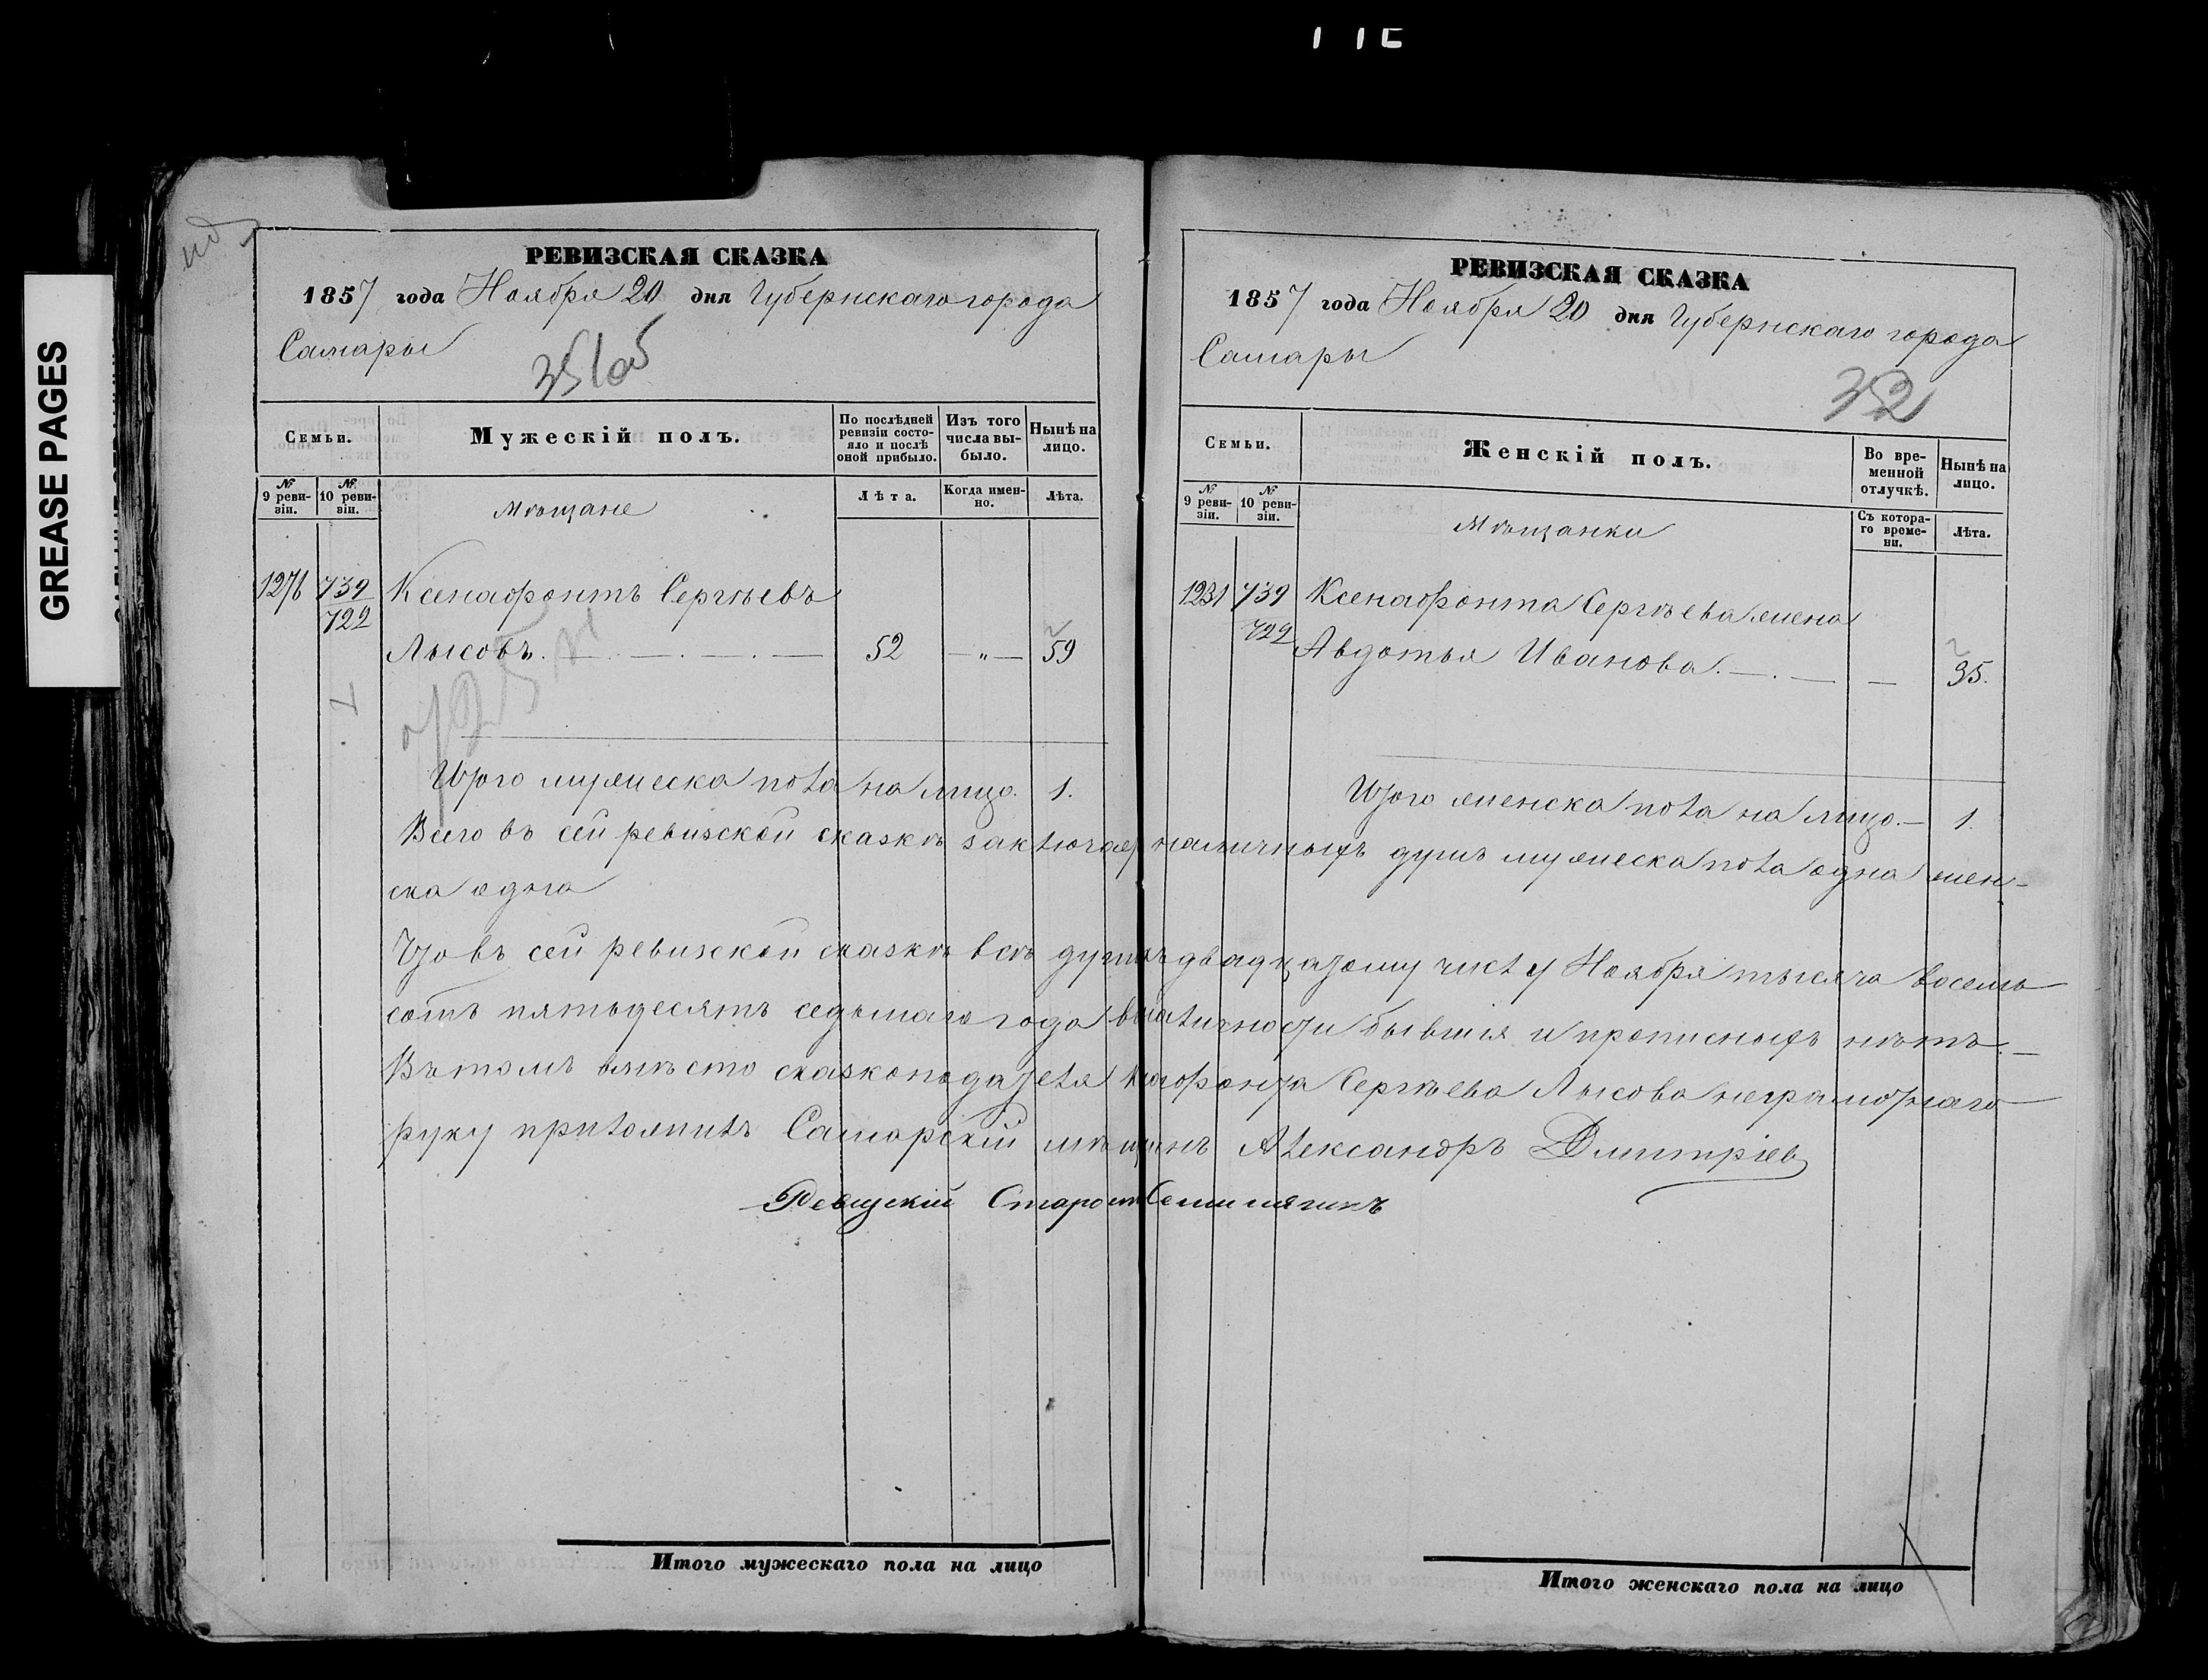 GREASE PAGES
РЕВИЗСКАЯ СКАЗКА
1857 года Ноября 20 дня Губернскаго города
Самары
351об
Семьи.
Мужескій полъ.
По послѣдней ревизіи состояло и послѣ оной прибыло.
Изъ того числа выбыло.
Нынѣ на лицо.
№ 9 ревизіи.
№ 10 ревизіи.
Мѣщане
Лѣта.
Когда именно.
Лѣта.
1276 739 Ксенафонтъ Сергѣевъ
722 Лысовъ. 52 — „ — 59
Итого мужеска пола на лицо. 1.
РЕВИЗСКАЯ СКАЗКА
1857 года Ноября 20 дня Губернскаго города
Самары
352
Семьи.
Женскій полъ.
Во временной отлучкѣ.
Нынѣ на лицо.
№ 9 ревизіи.
№ 10 ревизіи.
Мѣщанки
Съ котораго времени.
Лѣта.
1231 739 Ксенафонта Сергѣева жена
722 Авдотья Иванова. — 35.
Итого женска пола на лицо. — 1.
Всего въ сей ревизской сказкѣ наличныхъ душъ мужеска пола одна жен-
ска одна
Что въ сей ревизской сказкѣ всѣ души двадцатому числу Ноября тысяча восемь
сотъ пятьдесятъ седьмаго года бывшія и прописныхъ нѣтъ. —
Въ томъ вмѣсто сказкоподателя Сергѣева Лысова неграмотнаго
руку приложилъ Самарскій мѣщанинъ Александръ Дмитріев
Староста
Итого мужескаго пола на лицо
Итого женскаго пола на лицо